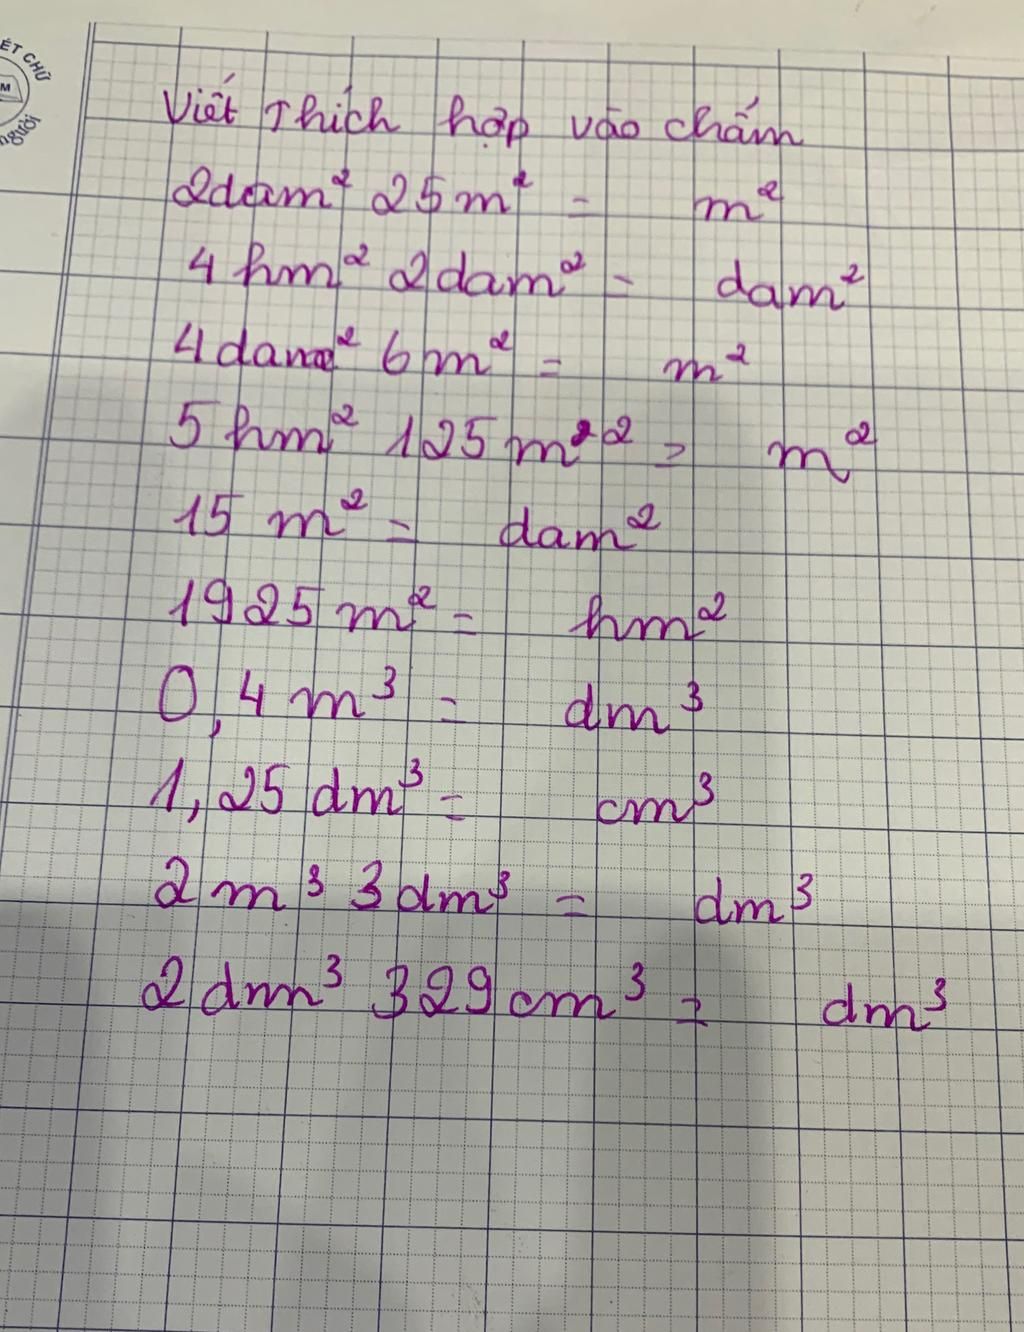 ÉT CHỮ
M
người
Viết Thích hợp vào chấm
2dam² 25m² = m²
4 hm² 2dam² = dam²
4dam² 6m² = m²
5 hm² 125 m² = m²
15 m² = dam²
1925 m² = hm²
0,4 m³ = dm³
1,25 dm³ = cm³
2 m³ 3dm³ = dm³
2 dm³ 329 cm³ = dm³